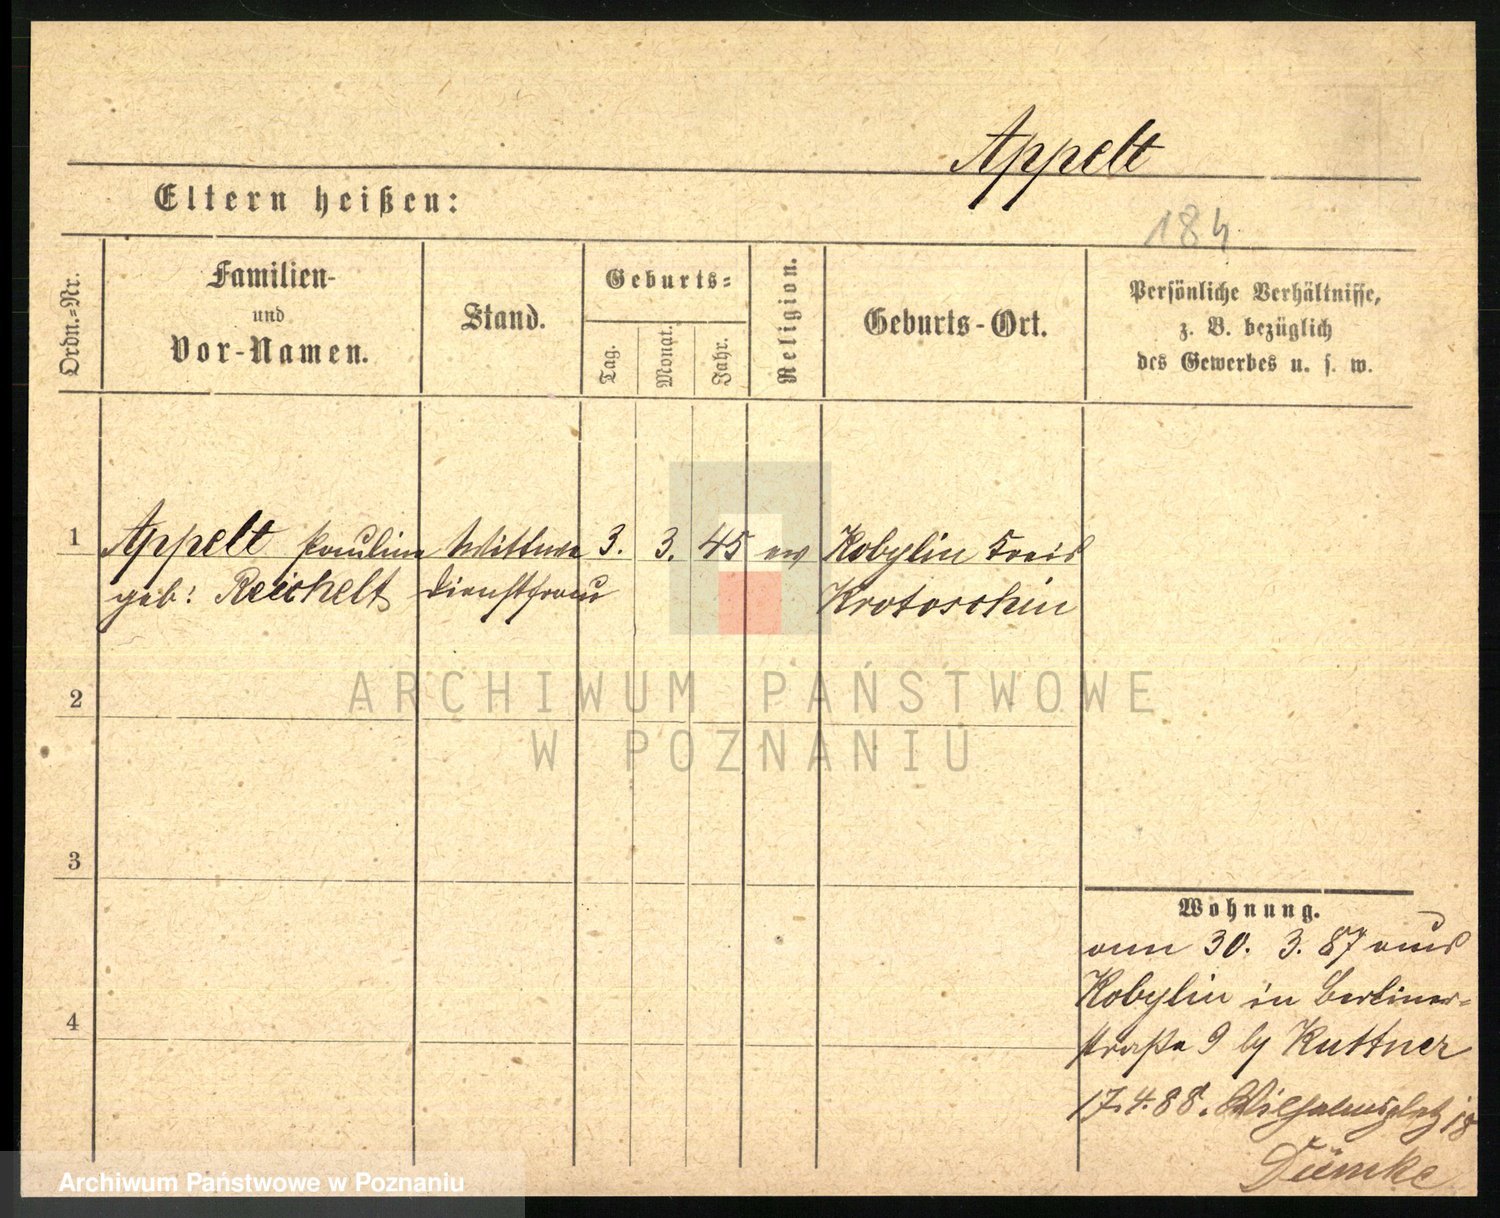 Appelt
Eltern heißen:
184
Ordn.-Nr.
Familien-
und
Vor-Namen.
Stand.
Geburts-
Tag.
Monat.
Jahr.
Religion.
Geburts-Ort.
Persönliche Verhältnisse,
z. B. bezüglich
des Gewerbes u. s. w.
1 Appelt Pauline Wittwe 3. 3. 45 ev Kobylin Kreis
geb: Reichelt Dienstfrau Krotoschin
ARCHIWUM PAŃSTWOWE
W POZNANIU
2
3
4
Wohnung.
am 30. 3. 87 aus
Kobylin in Berliner-
straße 9 by Kuttner
17.4.88. Wilhelmsplatz 18
Dümke
Archiwum Państwowe w Poznaniu